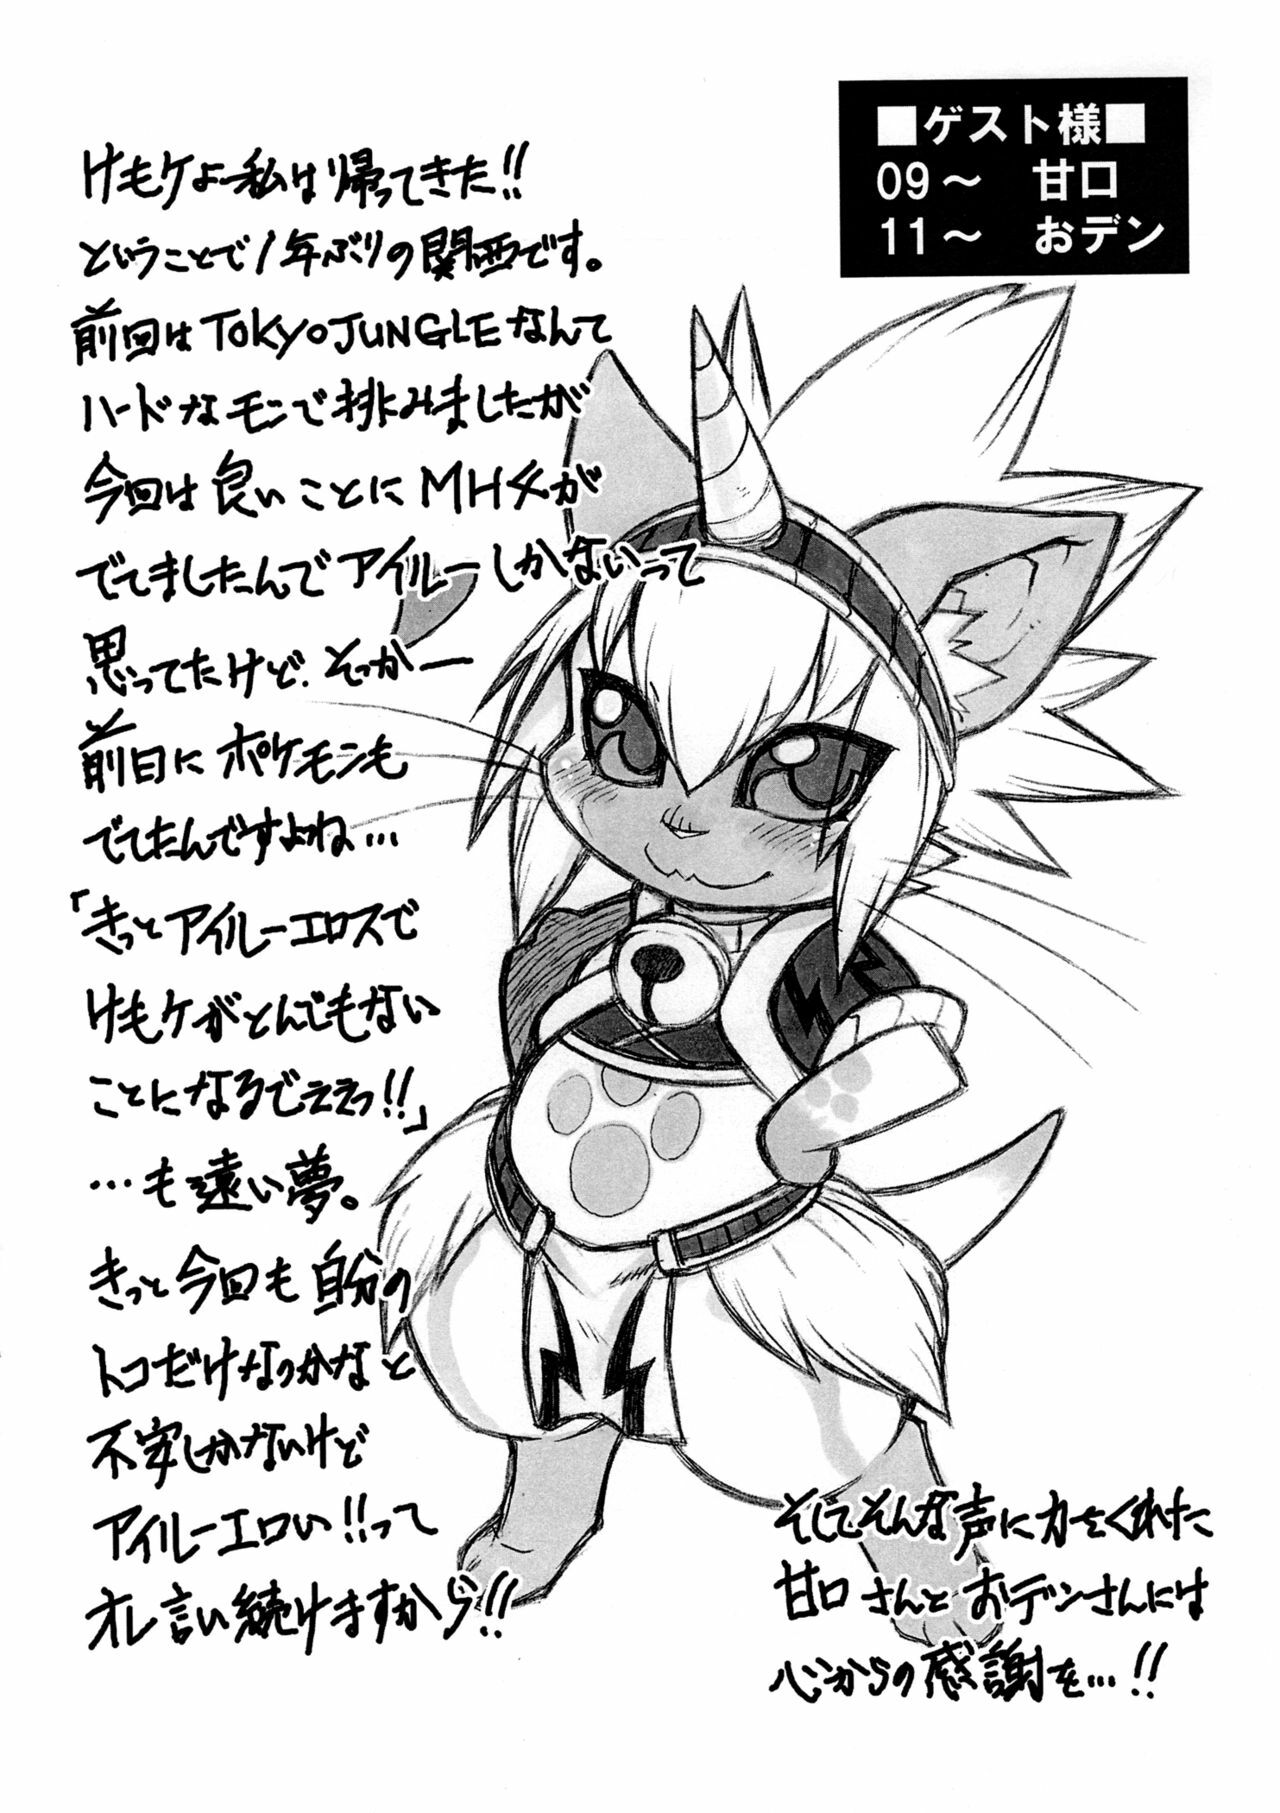 ■ゲスト様■
09～　甘口
11～　おデン
けもケよー私は帰ってきた!!
ということで1年ぶりの関西です。
前回はTOKYO JUNGLEなんて
ハードなモンで挑みましたが
今回は良いことにMH4が
でてましたんでアイルーしかないって
思ってたけど、そっかー
前日にポケモンも
でてたんですよね…
「きっとアイルーエロスで
けもケがとんでもない
ことになるでぇぇっ!!」
…も遠い夢。
きっと今回も自分の
トコだけなっかなと
不安しかないけど
アイルーエロい!!って
オレ言い続けますから!!
そしてそんな声に力をくれた
甘口さんとおデンさんには
心からの感謝を…!!